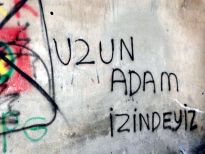 UZUN
ADAM
İZİNDEYİZ